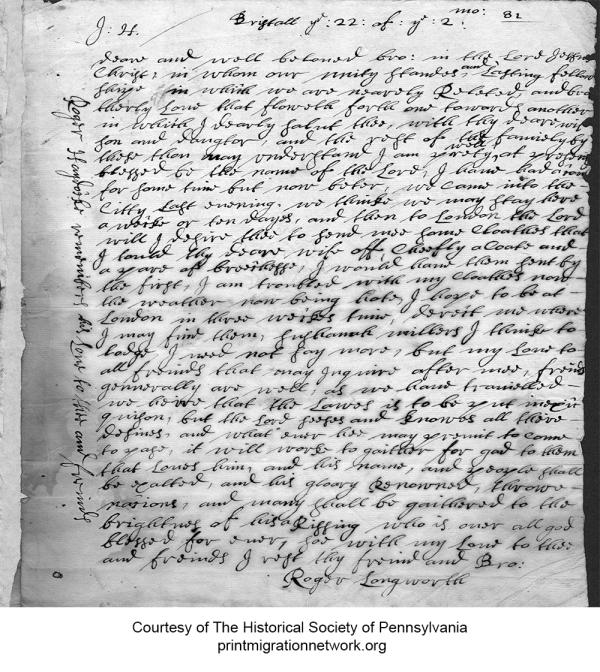 J: H. Bristall ye: 22: of: ye: 2: mo: 81
deare and well beloved bro: in the Lord Jessus
Christ, in whom our unity standes, and Lasting fellow
shipe in which we are nearely Releted, and bro
therly Love that floweth forth one towards another
in which I dearly salut thee, with thy deare wife
son and daughtor, and the rest of the famiely by
these thou may understand I am prety well, at present
blessed be the name of the Lord, I have had a
for some time but now beter, we came into the
Citty Last evening. we thinke we may stay here
a weeke or ten dayes, and then to London the Lord
will I desire thee to send mee some Cloathes that
I thy deare wife off, Cheefly a Coate and
a paire of breethes, I would have them sent by
the first, I am troubled with my Cloathes now
the weather now being hote, I hope to be at
London in three weekes time, dereit me where
I may find them, millers I thinke to
lodge, I need not say more, but my Love to
all freinds that may Inquire after mee, freinds
generally are well, as we have travelled
we heare that the Lawes is to be put in
but the Lord seeses and knowes all there
desines. and what ever hee may premit to come
to pase, it will worke to gaither for god to them
that Loves him, and his name, and people shall
be exalted, and his glory Renowned, throwe
nasions, and many shall be gaithered to the
brightnes of his Rissing who is over all god
blessed for ever, soe with my Love to thee
and freinds I rest thy freind and Bro:
Roger Longworth
Roger remembers his Love to thee and freinds
Courtesy of The Historical Society of Pennsylvania
printmigrationnetwork.org